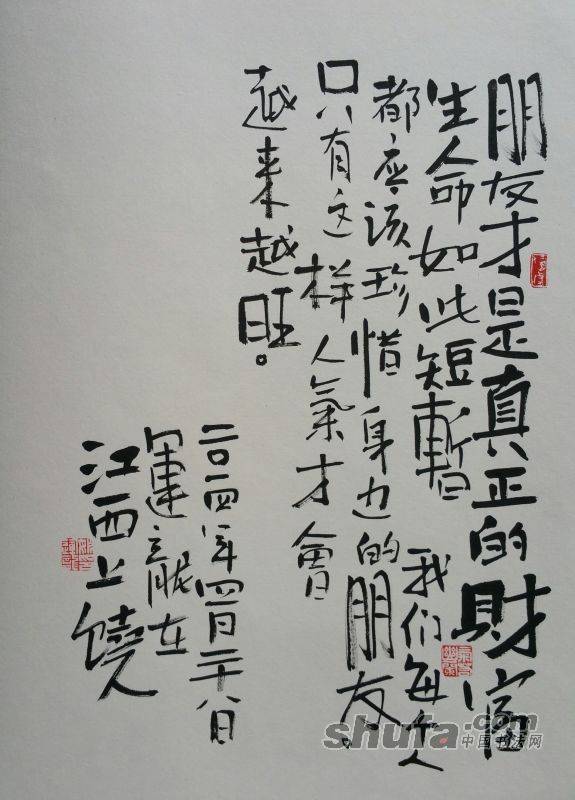 朋友才是真正的財富
生命如此短暫 我们每个人
都应该珍惜身边的朋友。
只有这样人氣才會
越来越旺。
二〇一四年四月二十八日
在
江西上饶
shufa.com
中国书法网